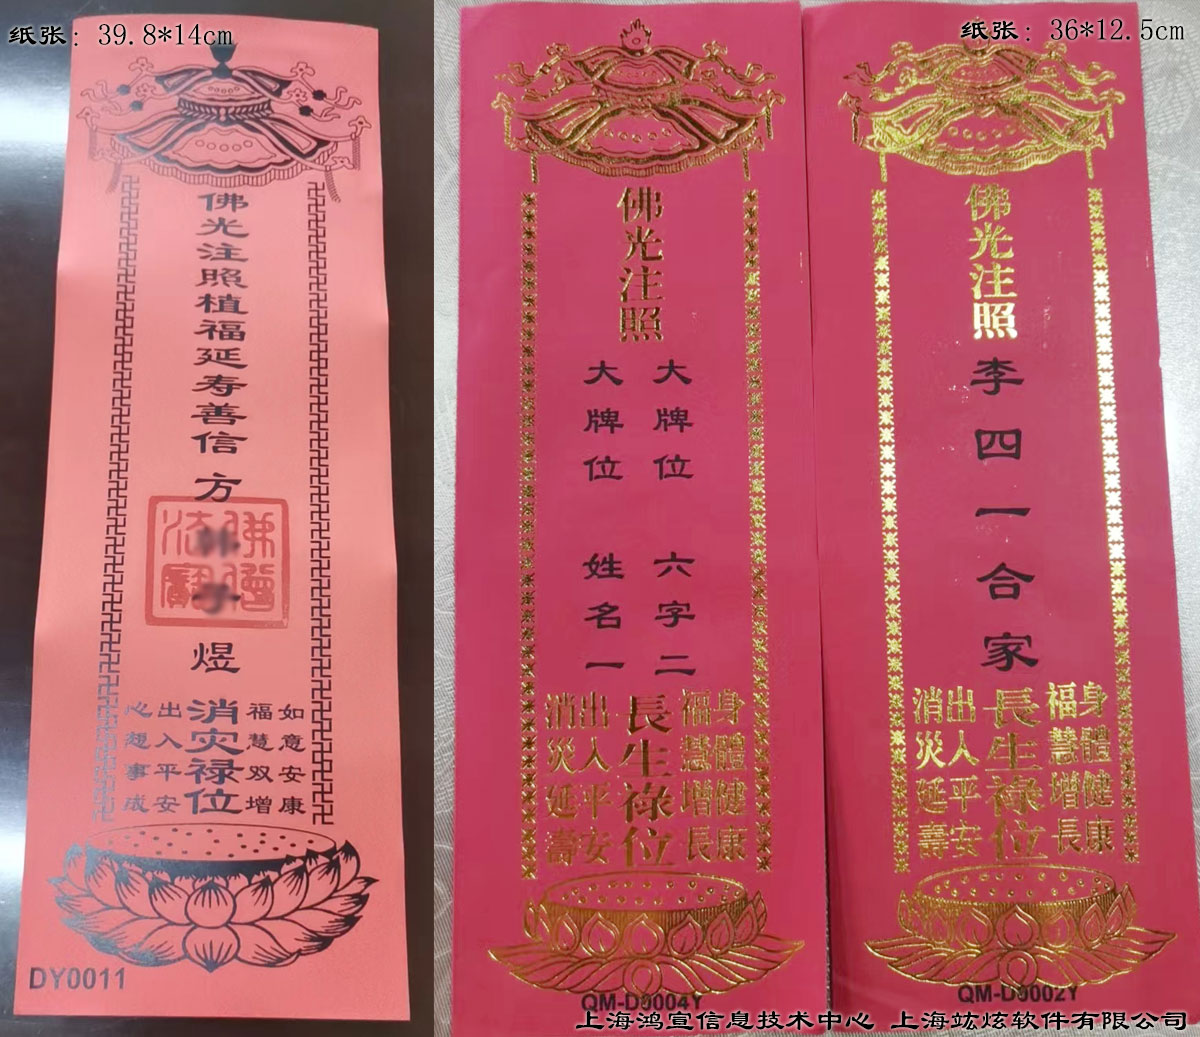 纸张：39.8*14cm
佛光注照植福延寿善信方
煜
如意安康
福慧双增
消灾禄位
出入平安
心想事成
DY0011
佛光注照
大牌位 六字二
大牌位 姓名一
身體健康
福慧增長
長生祿位
出入平安
消災延壽
QM-D0004Y
纸张：36*12.5cm
佛光注照
李四一合家
身體健康
福慧增長
長生祿位
出入平安
消災延壽
QM-D0002Y
上海鸿宣信息技术中心 上海竑炫软件有限公司